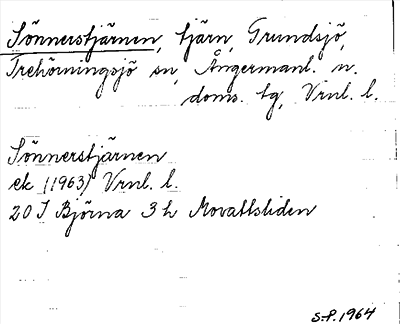 Sönnerstjärnen, tjärn, Grundsjö,
Trehörningsjö sn, Ångermanl. n.
doms. tg, Vrnl. l.
Sönnerstjärnen
ek (1963) Vrnl. l.
20 I Björna 3 h Movattsliden
S-P. 1964